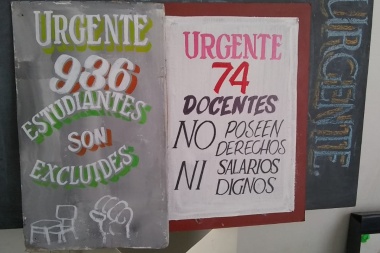 URGENTE
986
ESTUDIANTES
SON
EXCLUIDES
URGENTE
74
DOCENTES
NO POSEEN
DERECHOS
NI SALARIOS
DIGNOS
URGENTE